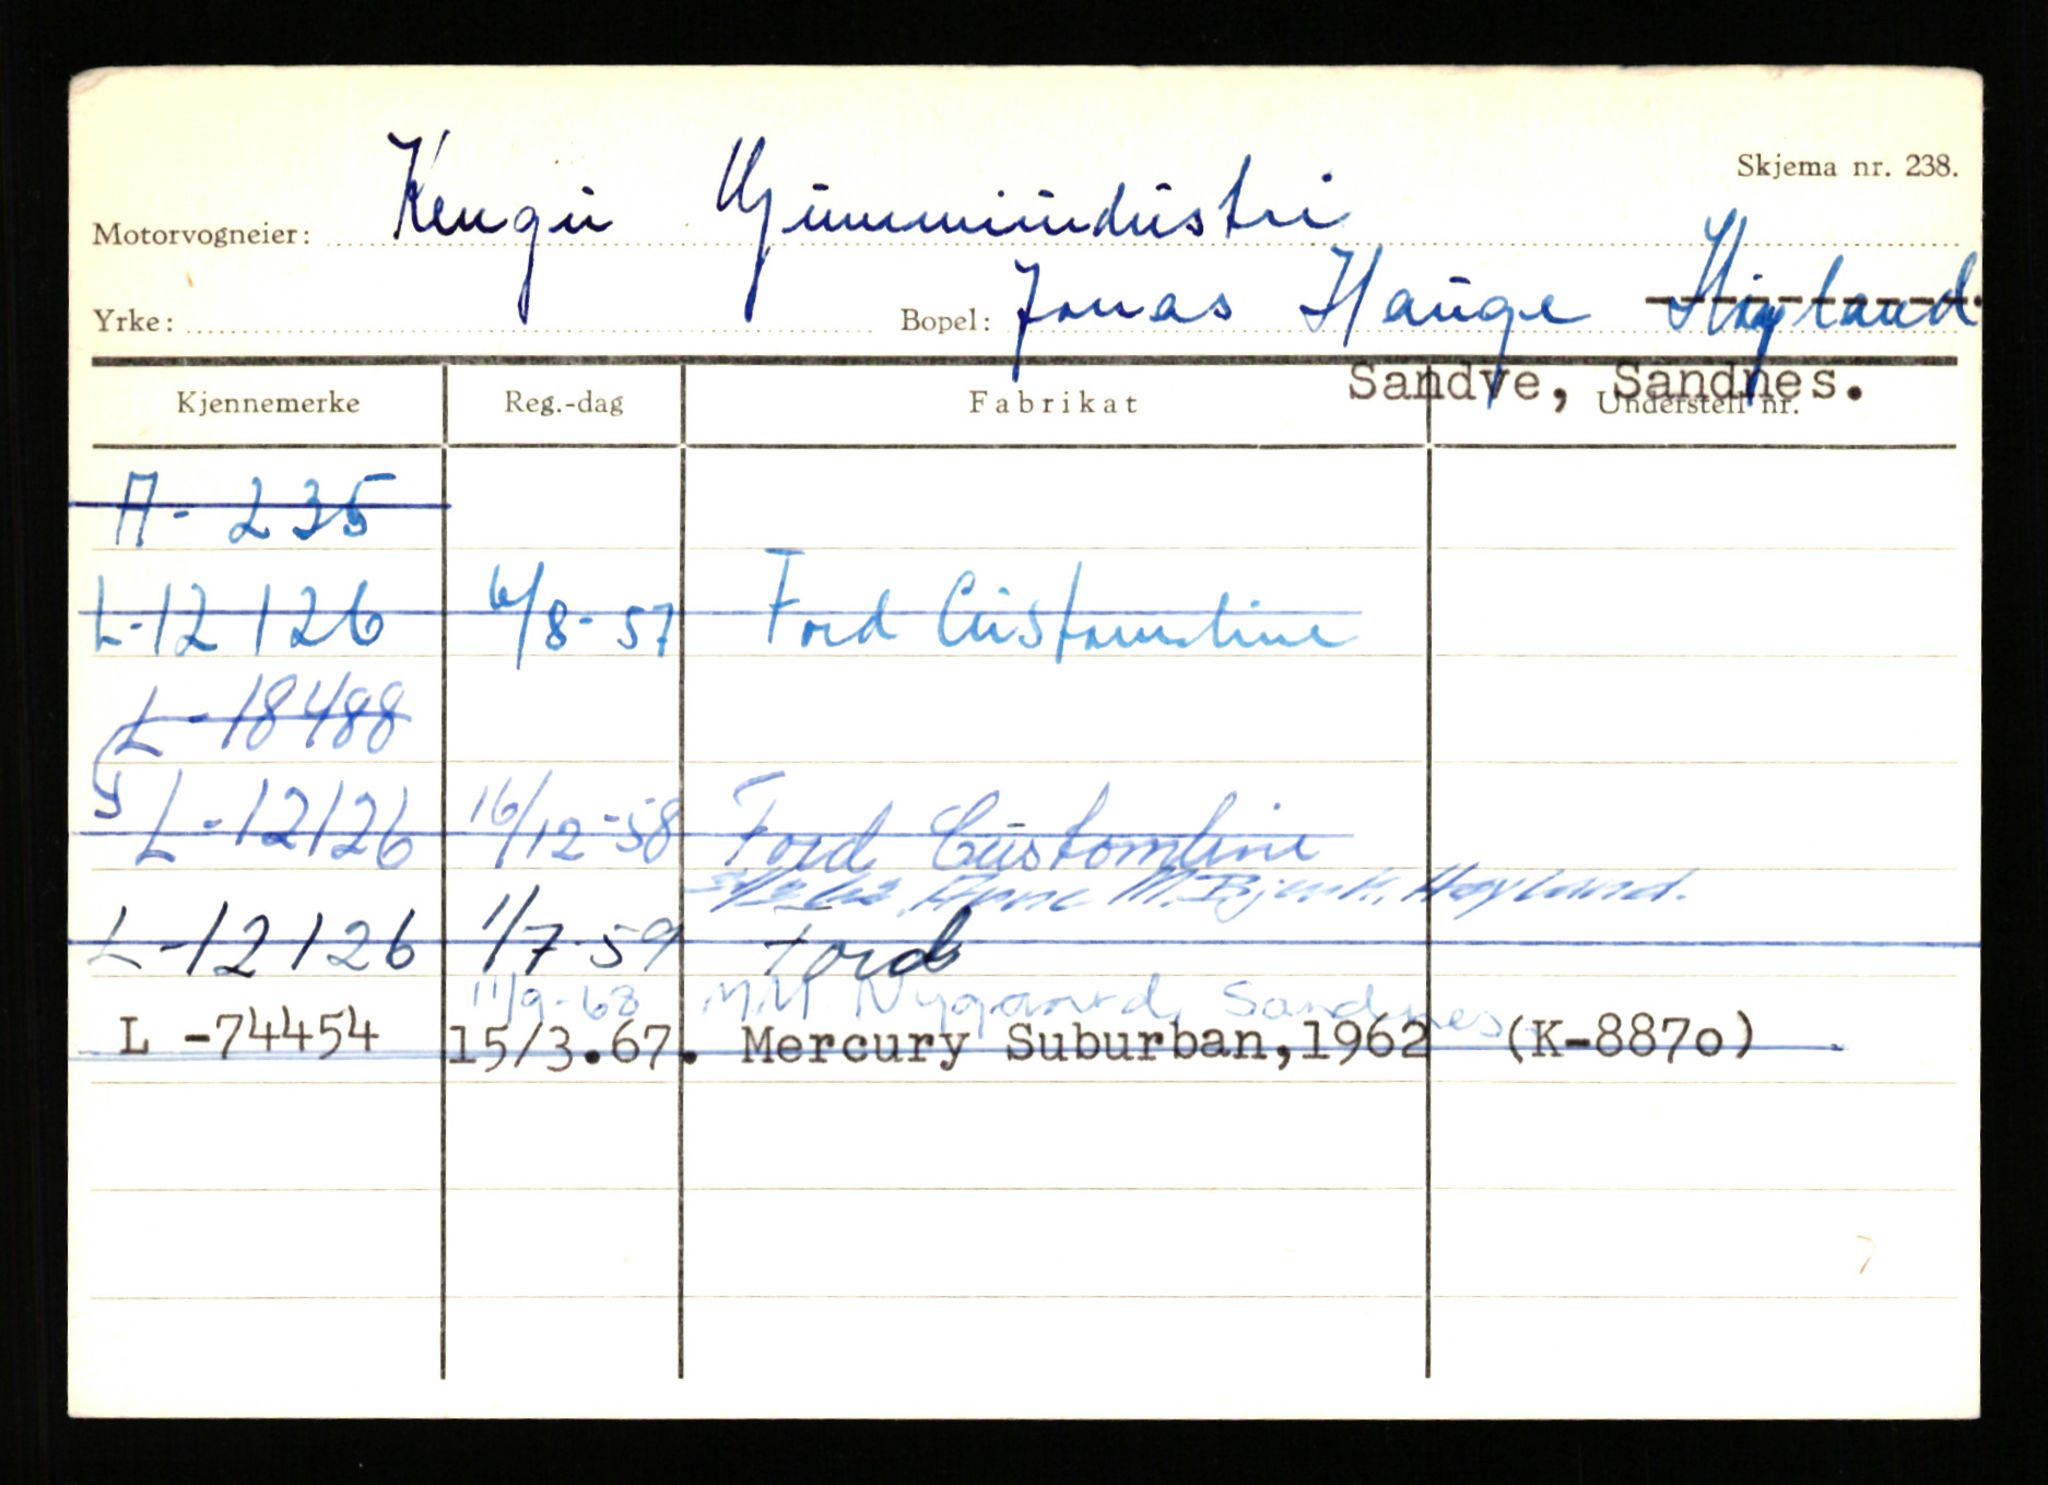 Skjema nr. 238.
Motorvogneier: Kengu Gummiindustri
Yrke: Bopel: Jonas Hauge Høyland
Sandve, Sandnes.
Kjennemerke Reg.-dag Fabrikat Understell nr.
A- 235
L-12126 6/8-57 Ford Customline
L-18488
L-12126 16/12-58 Ford Customline
Arne M. Høyland.
L-12126 1/7-59 Ford
11/9-68 MM Nygaard, Sandnes
L -74454 15/3.67. Mercury Suburban,1962 (K-887o)